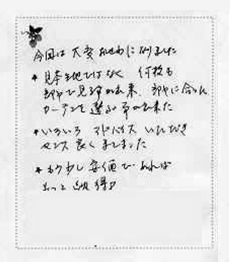 今回は大変お世話になりました
* 見本生地ではなく 何枚も
部屋で見る事が出来、部屋に合った
カーテンを選ぶ事が出来た
* いろいろアドバイスいただき
センス良くきまりました
* もう少し安価であれば
もっと納得♪